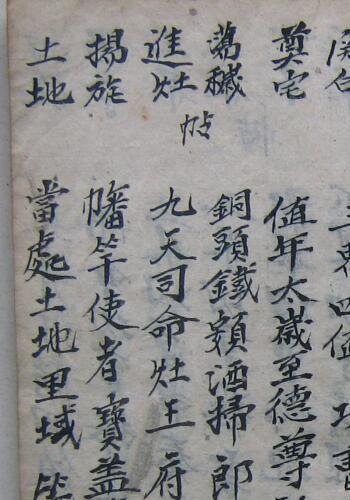 四值功曹
奠宅 值年太歲至德尊
蕩穢 銅頭鐵額洒掃郎
帖
進灶 九天司命灶王府
揚 幡竿使者寶盖
土地 當處土地里域